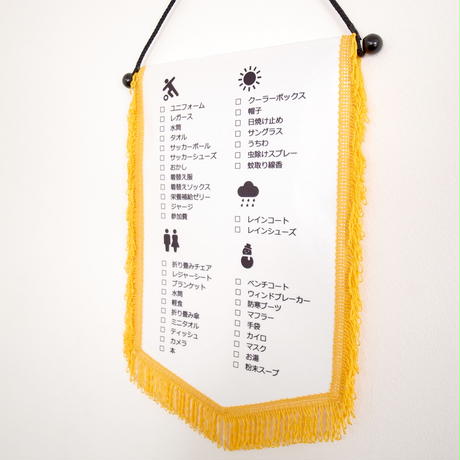 □ ユニフォーム
□ レガース
□ 水筒
□ タオル
□ サッカーボール
□ サッカーシューズ
□ おかし
□ 着替え服
□ 着替えソックス
□ 栄養補給ゼリー
□ ジャージ
□ 参加費
□ 折り畳みチェア
□ レジャーシート
□ ブランケット
□ 水筒
□ 軽食
□ 折り畳み傘
□ ミニタオル
□ ティッシュ
□ カメラ
□ 本
□ クーラーボックス
□ 帽子
□ 日焼け止め
□ サングラス
□ うちわ
□ 虫除けスプレー
□ 蚊取り線香
□ レインコート
□ レインシューズ
□ ベンチコート
□ ウィンドブレーカー
□ 防寒ブーツ
□ マフラー
□ 手袋
□ カイロ
□ マスク
□ お湯
□ 粉末スープ